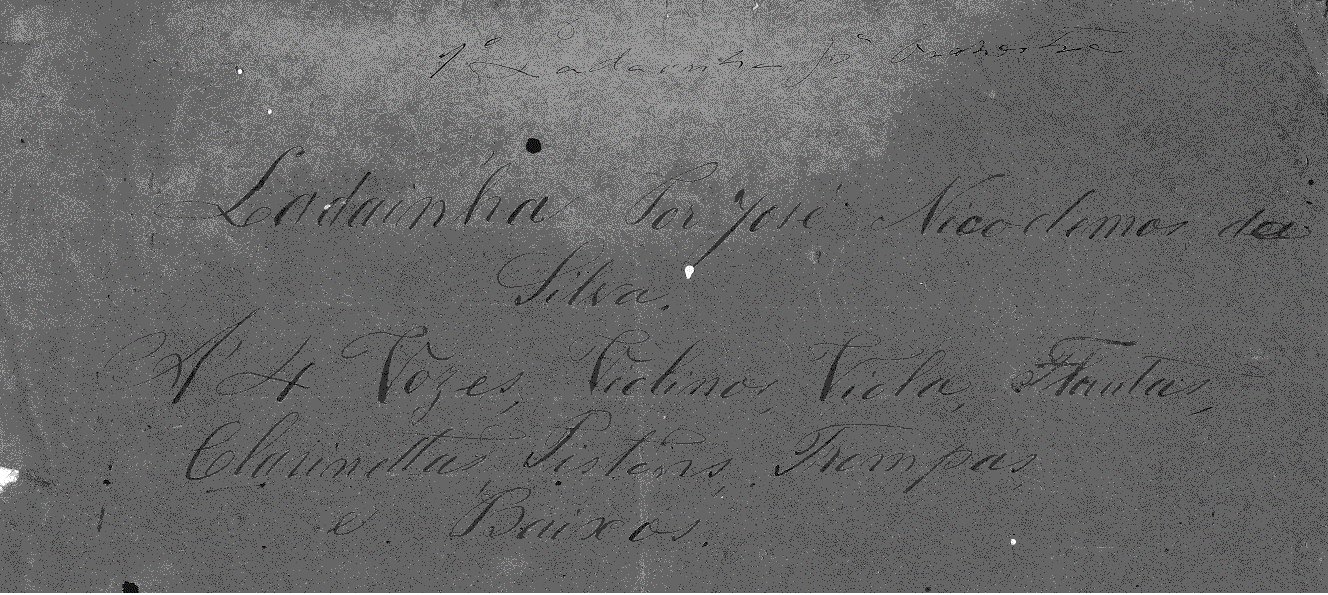 1ª Ladainha pª Orchestra
Ladainha Por José Nicodemos da
Silva.
A 4 Vozes, Violinos, Viola, Flautas,
Clarinettas, Pistons, Trompas
e Baixos.